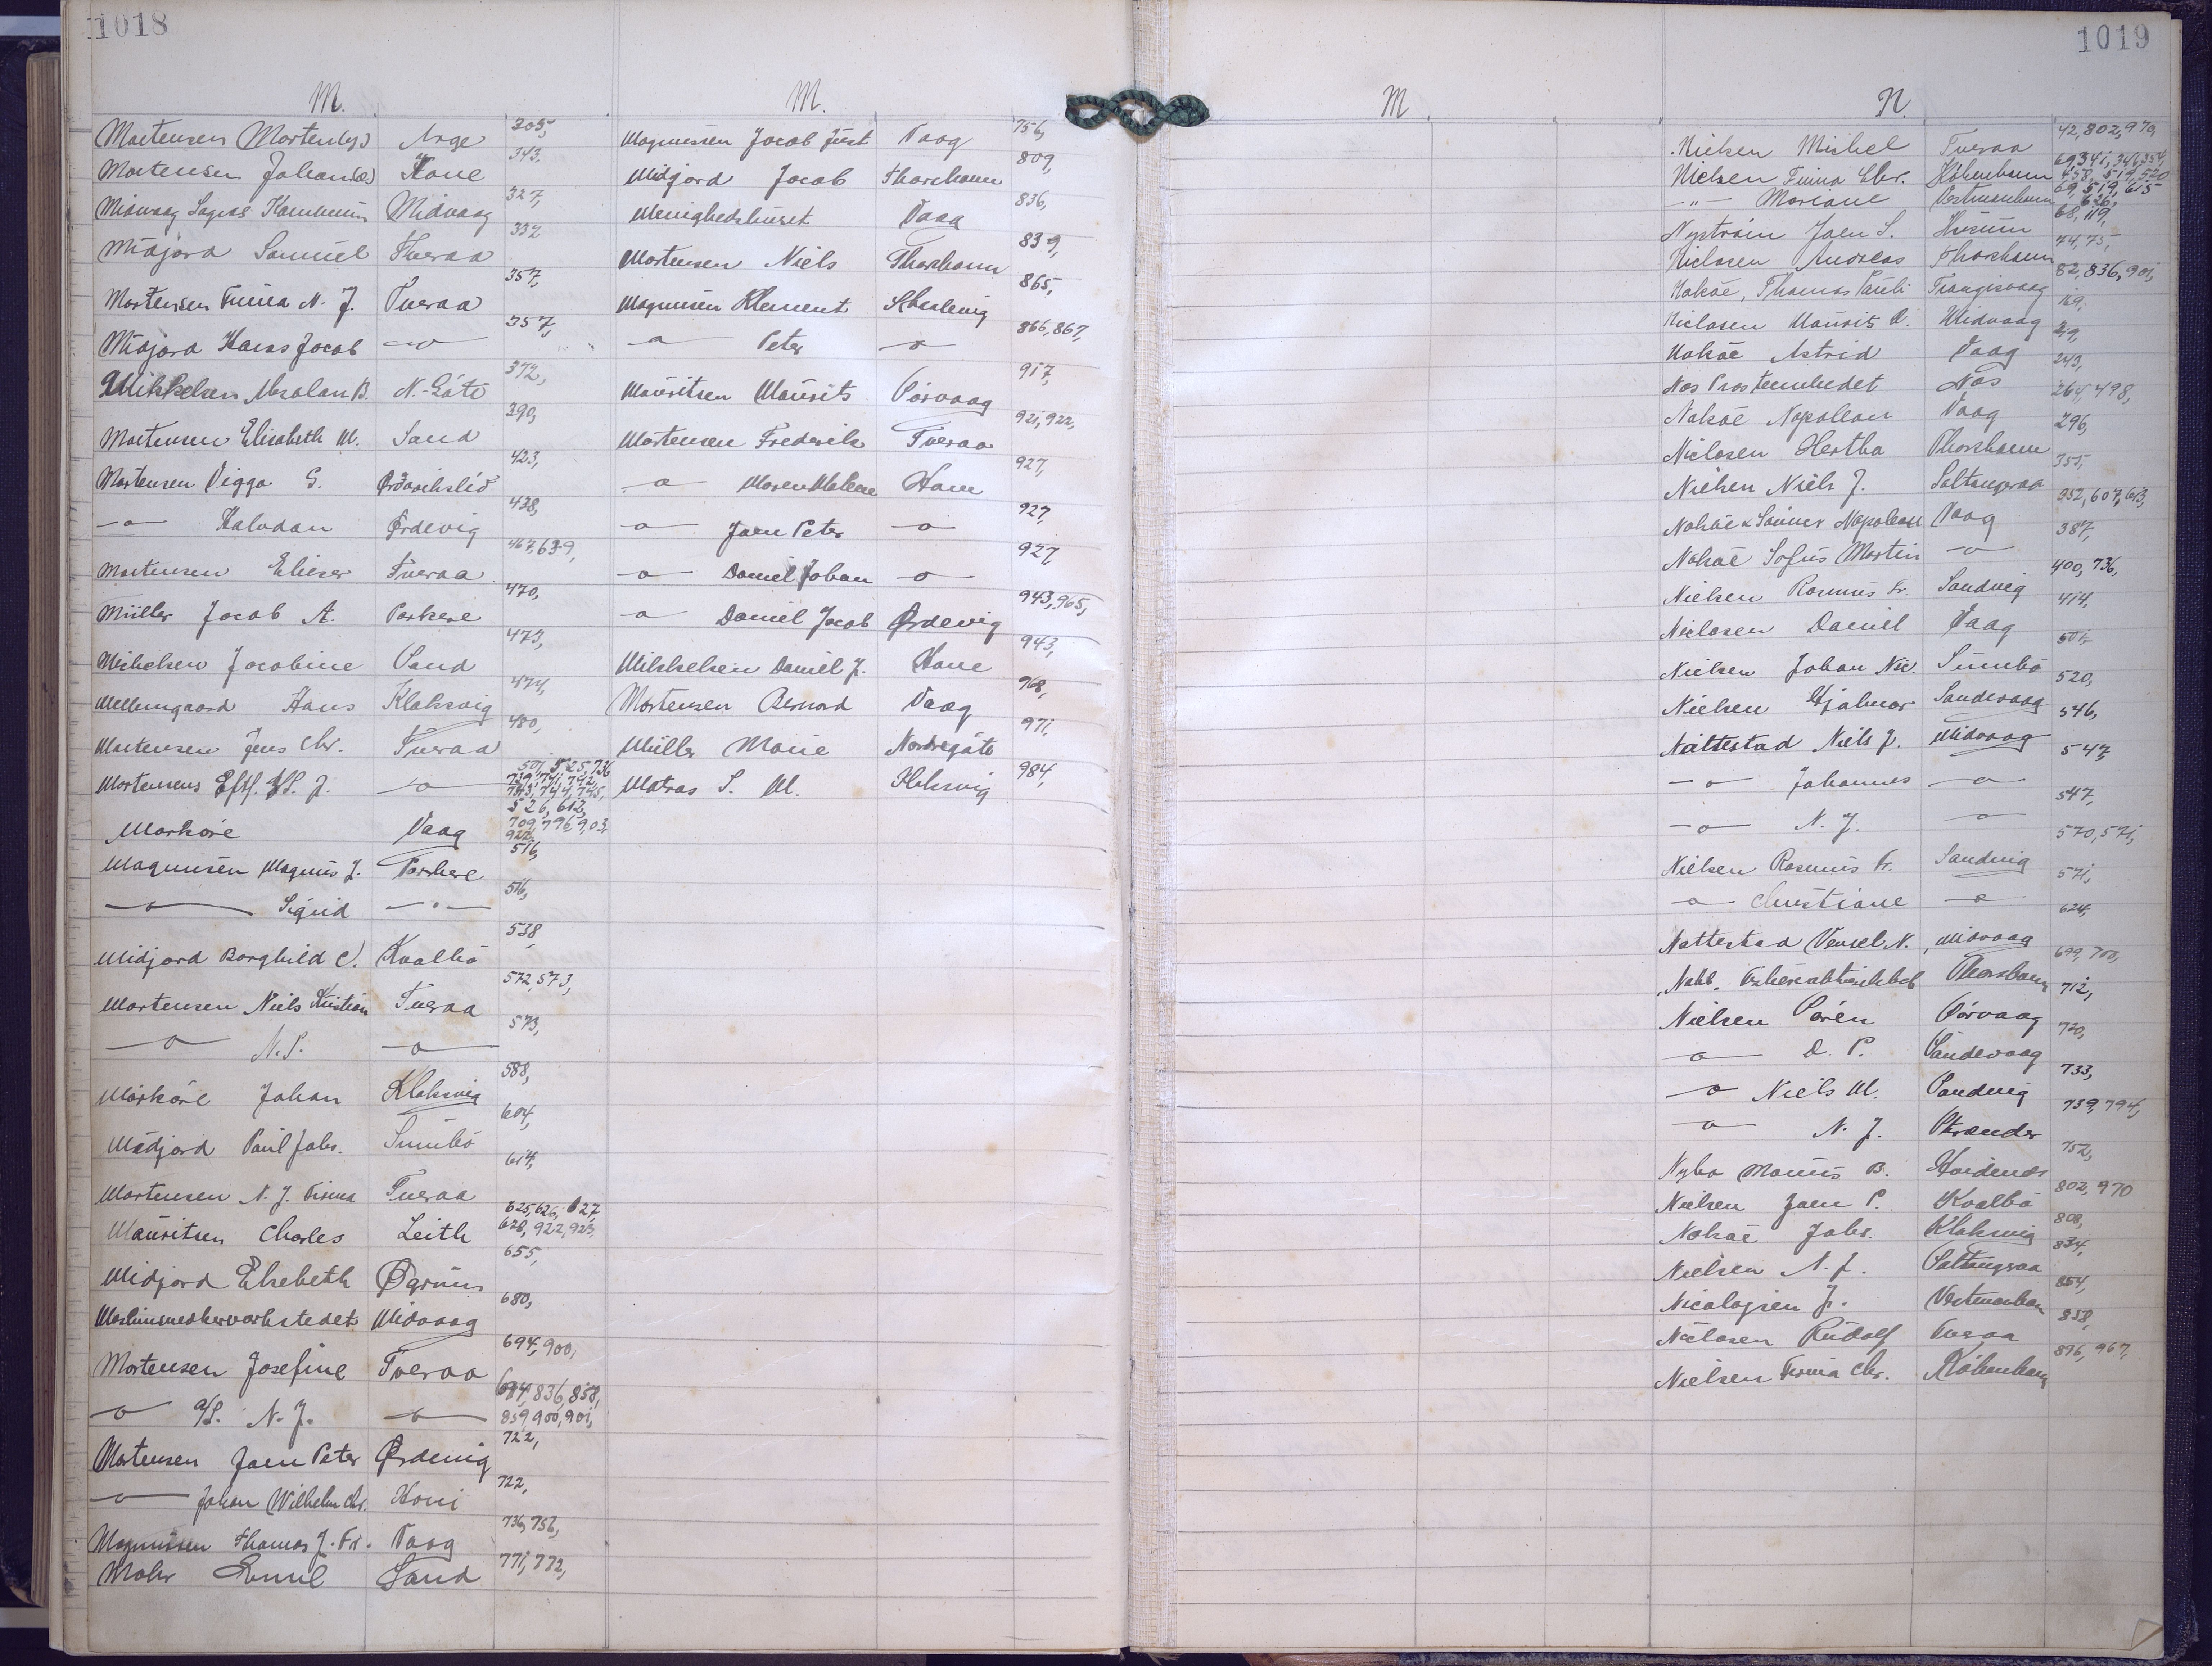 1018
M.
Mortensen Arge 305,
Mortensen Johan Hove 343,
Midvaag Sogns Midvaag 327,
Midjord Samuel Tveraa 332
Mortensen Firma N. J. Tveraa 357,
Midjord Hans Jacob —o— 357,
Mikkelsen Absalon B. N. Göte 372,
Mortensen Elisabeth M. Sand 390,
Mortensen Viggo G. 423,
—o— Halvdan Ørdevig 428,
Mortensen Elieser Tveraa 467, 639,
Müller Jacob A. Porkere 470,
Michelsen Jacobine Sand 473,
Mellemgaard Hans Klaksvig 474,
Mortensen Jens Chr. Tveraa 480,
Mortensens Eftf. A/S. J. —o— 501, 525, 736 739, 741, 742, 743, 744, 745,
Morkøre Vaag 526, 612, 709, 796, 903, 922,
Magnussen Magnus J. Porkere 516,
—o— Sigrid —"— 516,
Midjord Borghild C. Kvalbö 538,
Mortensen Niels Kristian Tveraa 572, 573,
—o— N. P. —o— 573,
Morköre Johan Klaksvig 588,
Midjord Paul Johs. Sumbö 604,
Mortensen N. J. Firma Tveraa 614,
Mouritsen Charles Leith 625, 626, 627, 628, 922, 923,
Midjord Elsebeth Øgrims 655,
Maskinsnedkerværkstedet Midvaag 680,
Mortensen Josefine Tveraa 694, 900,
—o— A/S. N. J. —o— 694, 836, 858, 859, 900, 901,
Mortensen Joen Peter Ørdevig 722,
—o— Johan Wilhelm Chr. Hovi 722,
Magnussen Thomas J. Fr. Vaag 736, 756,
Mohr Emil Sand 771, 772,
M.
Magnussen Jacob Just Vaag 756,
Midjord Jacob Thorshavn 809,
Menighedshuset Vaag 836,
Mortensen Niels Thorshavn 839,
Magnussen Klement Skaalevig 865,
—o— Peter —o— 866, 867,
Mouritsen Mourits Sörvaag 917,
Mortensen Frederik Tveraa 921, 922,
—o— Maren Malene Hove 927,
—o— Joen Peter —o— 927,
—o— Daniel Johan —o— 927,
—o— Daniel Jacob Ørdevig 943, 965,
Mikkelsen Daniel J. Hove 943,
Mortensen Bernard Vaag 968,
Müller Marie Nordregöte 971,
Matras S. M. Klaksvig 984,
M
1019
N.
Nielsen Michel Tveraa 42, 802, 970,
Nielsen Firma Chr. Köbenhavn 69, 341, 346, 354, 458, 519, 520
—"— Mariane Vestmanhavn 69, 519, 615 626,
Nyström Joen S. Husum 68, 119,
Niclasen Andreas Thorshavn 74, 75,
Nolsöe, Thomas Pauli Trangisvaag 82, 836, 901,
Niclasen Mourits D. Midvaag 119,
Nolsöe Astrid Vaag 219,
Nes Præsteembedet Nes 243,
Nolsöe Napoleon Vaag 264, 498,
Niclasen Hertha Thorshavn 296,
Nielsen Niels J. Saltangeraa 355,
Nolsöe & Sönner Napoleon Vaag 352, 607, 613,
Nolsöe Sofus Martin —o— 387,
Nielsen Rasmus Fr. Sandvig 400, 736,
Niclasen Daniel Vaag 414,
Nielsen Johan Nic. Sumbö 501,
Nielsen Hjalmar Sandevaag 520,
Nattestad Niels J. Midvaag 546,
—o— Johannes —o— 547,
—o— N. J. —o— 547,
Nielsen Rasmus Fr. Sandvig 570, 571,
—o— Christiane —o— 571,
Nattestad Vensel N. Midvaag 624,
Thorshavn 699, 700,
Nielsen Sören Sörvaag 712,
—o— D. P. Sandevaag 720,
—o— Niels M. Sandvig 733,
—o— N. J. Strænder 739, 794,
Nybo Mouns B. Hvidenæs 752,
Nielsen Joen P. Kvalbö 802, 970
Nolsöe Johs. Klaksvig 808,
Nielsen N. J. Saltangeraa 834,
Nicolajsen J. Vestmanhavn 854,
Niclasen Rudolf Tveraa 858,
Nielsen Firma Chr. Köbenhavn 896, 967,